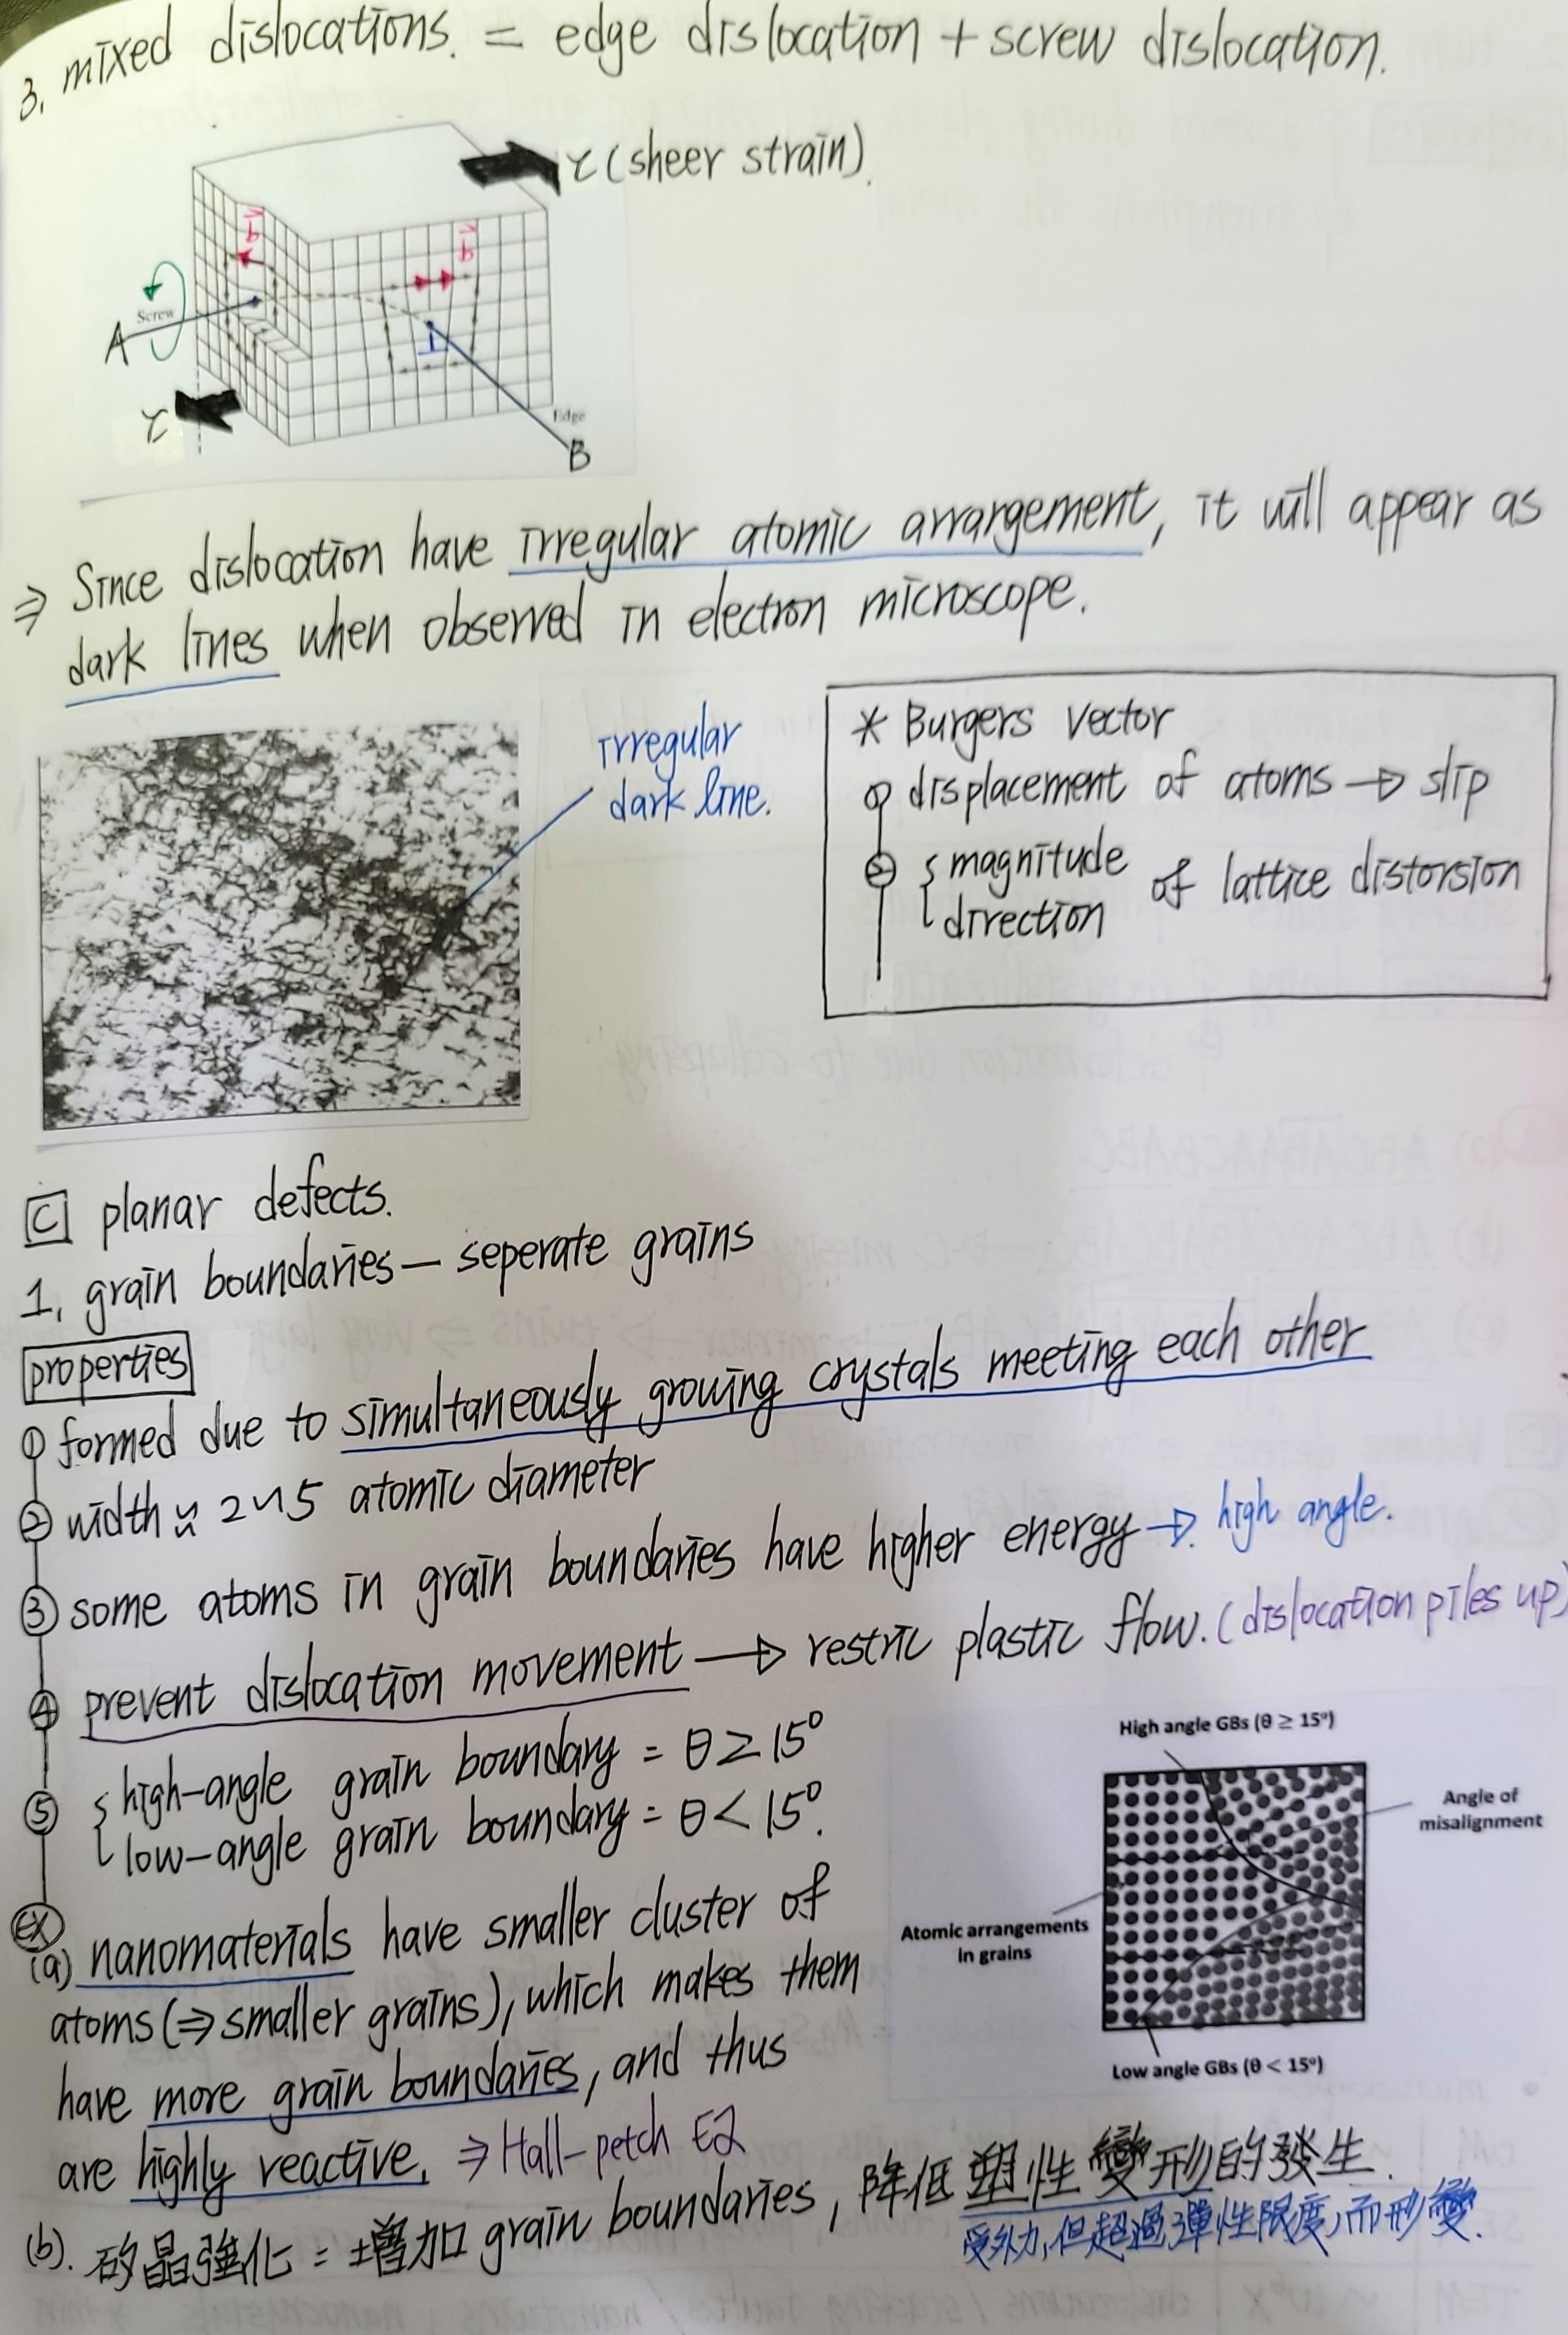 3. mixed dislocations. = edge dislocation + screw dislocation.
τ (sheer strain).
b
b
Screw
A
τ
Edge
B
⇒ Since dislocation have irregular atomic arrargement, it will appear as
dark lines when observed in electron microscope.
irregular
dark line.
* Burgers vector
① displacement of atoms → slip
② { magnitude
direction
of lattice distorsion
C planar defects.
1. grain boundaries — seperate grains
properties
① formed due to simultaneously growing crystals meeting each other
② width ≈ 2~5 atomic diameter
③ some atoms in grain boundaries have higher energy → high angle.
④ prevent dislocation movement → restric plastic flow. (dislocation piles up)
⑤ { high-angle grain boundary = θ ≥ 15°
low-angle grain boundary = θ < 15°.
High angle GBs (θ ≥ 15°)
Angle of
misalignment
Atomic arrangements
in grains
Low angle GBs (θ < 15°)
EX
(a) nanomaterials have smaller cluster of
atoms (⇒ smaller grains), which makes them
have more grain boundaries, and thus
are highly reactive. ⇒ Hall-petch EQ
(b). 矽晶強化 = 增加 grain boundaries, 降低塑性變形的發生.
受外力,但超過彈性限度,而形變.